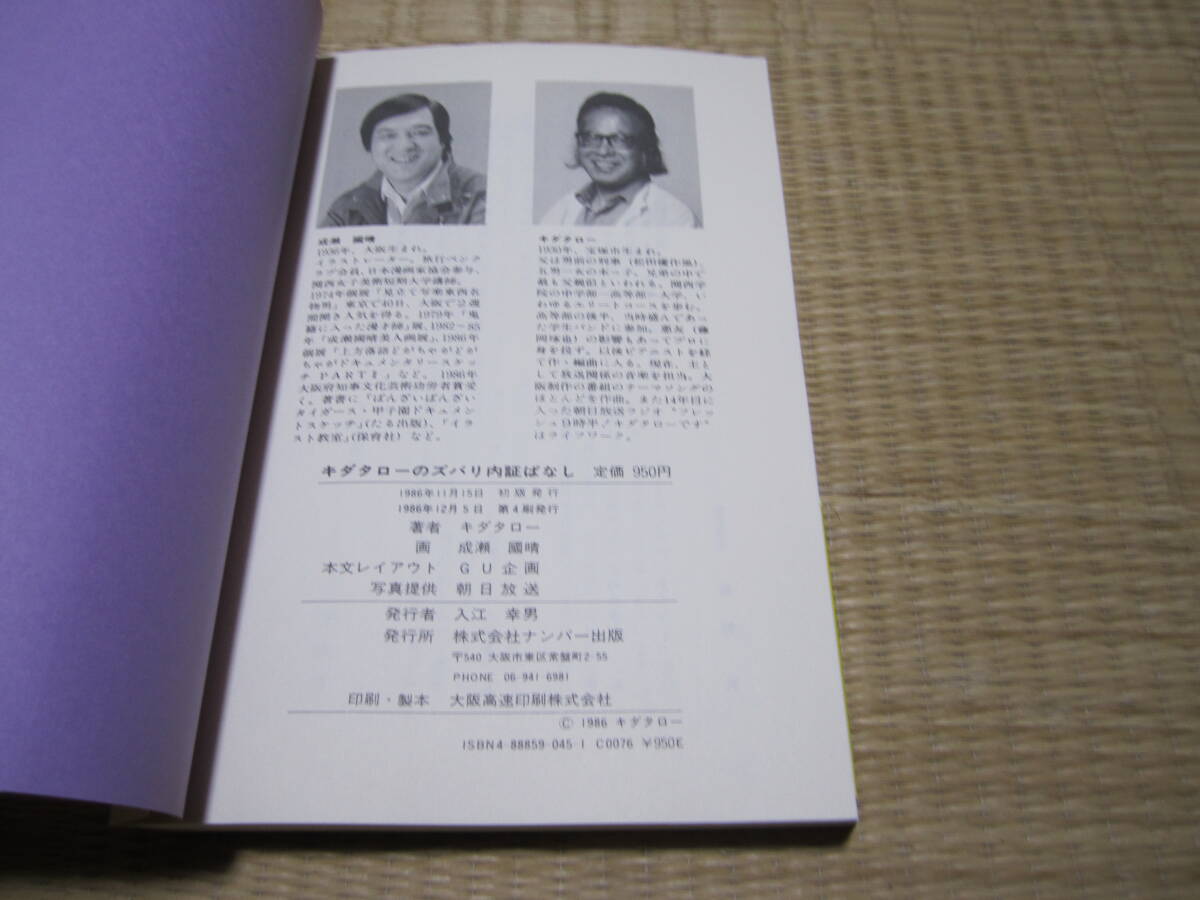 成瀬 國晴
1936年、大阪生まれ。
イラストレーター。旅行ペンク
ラブ会員、日本漫画家協会参与、
関西女子美術短期大学講師。
1974年個展「見立て写楽東西名
物男」東京で40日、大阪で2週
間開き人気を得る。1979年「鬼
籍に入った漫才師」展、1982〜85
年「成瀬國晴美人画展」、1986年
個展「上方落語どがちゃがどが
ちゃがドキュメンタリースケッ
チ PART I」など。1986年
大阪府知事文化芸術功労者賞受
く。著書に「ばんざいばんざい
タイガース・甲子園ドキュメン
トスケッチ」(たる出版)、「イラ
スト教室」(保育社)など。
キダタロー
1930年、宝塚市生まれ。
父は男前の刑事(松田優作風)、
五男一女の末っ子、兄弟の中で
最も父親似といわれる。関西学
院の中学部—高等部—大学、い
わゆるエリートコースを歩む。
高等部の後半、当時盛んであっ
た学生バンドに参加。悪友(藤
岡琢也)の影響もあってプロに
身を投ず。以後ピアニストを経
て作・編曲に入る。現在、主と
して放送関係の音楽を担当。大
阪制作の番組のテーマソングの
ほとんどを作曲。また14年目に
入った朝日放送ラジオ"フレッ
シュ9時半!キダタローです"
はライフワーク。
キダタローのズバリ内証ばなし 定価 950円
1986年11月15日 初版発行
1986年12月5日 第4刷発行
著者 キダタロー
画 成瀬 國晴
本文レイアウト GU企画
写真提供 朝日放送
発行者 入江 幸男
発行所 株式会社ナンバー出版
〒540 大阪市東区常盤町2-55
PHONE 06-941-6981
印刷・製本 大阪高速印刷株式会社
© 1986 キダタロー
ISBN4-88859-045-1 C0076 ¥950E